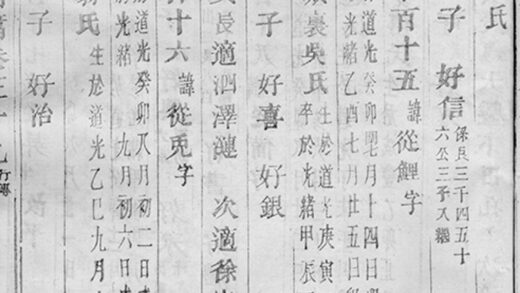 氏
子 好信 保良三千四五十
六公三子又繼
百十五 諱從鯉字
道光癸卯 七月十四日
光緒乙酉七月廿五日
吳氏 生於道光庚寅
卒於光緒甲辰
子 好喜 好銀
長適泗澤漣 次適徐
十六 諱從兎字
道光癸卯八月初二日
光緒 九月初六日
氏 生於道光乙巳九月
子 好治
行傳